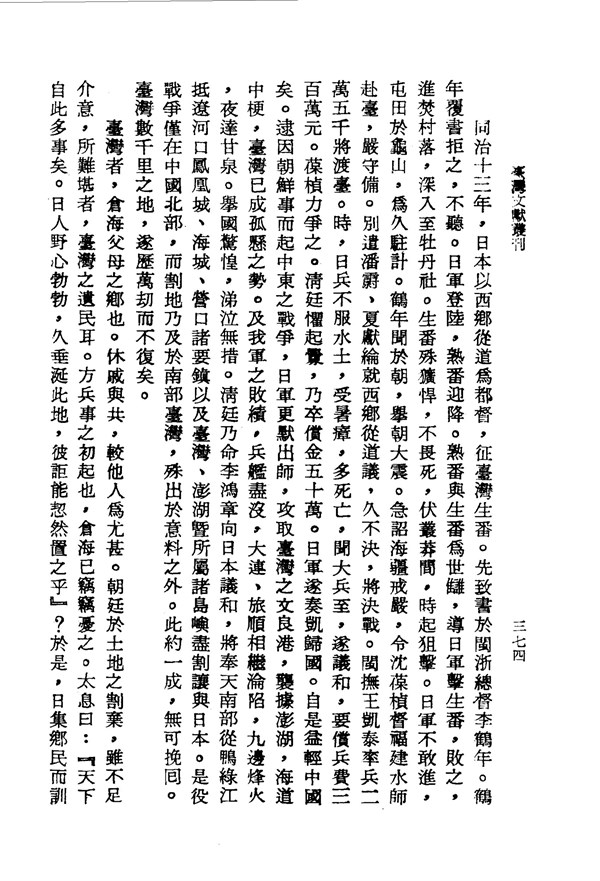 臺灣文獻叢刊
三七四
同治十三年，日本以西鄉從道爲都督，征臺灣生番。先致書於閩浙總督李鶴年。鶴
年覆書拒之，不聽。日軍登陸，熟番迎降。熟番與生番爲世讎，導日軍擊生番，敗之，
進焚村落，深入至牡丹社。生番殊獷悍，不畏死，伏叢莽間，時起狙擊。日軍不敢進，
屯田於龜山，爲久駐計。鶴年聞於朝，舉朝大震。急詔海疆戒嚴，令沈葆楨督福建水師
赴臺，嚴守備。別遣潘霨、夏獻綸就西鄉從道議，久不決，將決戰。閩撫王凱泰率兵二
萬五千將渡臺。時，日兵不服水土，受暑瘴，多死亡，聞大兵至，遂議和，要償兵費三
百萬元。葆楨力爭之。清廷懼起釁，乃卒償金五十萬。日軍遂奏凱歸國。自是益輕中國
矣。逮因朝鮮事而起中東之戰爭，日軍更默出師，攻取臺灣之文良港，襲據澎湖，海道
中梗，臺灣已成孤懸之勢。及我軍之敗績，兵艦盡沒，大連、旅順相繼淪陷，九邊烽火
，夜達甘泉。舉國驚惶，涕泣無措。清廷乃命李鴻章向日本議和，將奉天南部從鴨綠江
抵遼河口鳳凰城、海城、營口諸要鎮以及臺灣、澎湖暨所屬諸島嶼盡割讓與日本。是役
戰爭僅在中國北部，而割地乃及於南部臺灣，殊出於意料之外。此約一成，無可挽回。
臺灣數千里之地，遂歷萬劫而不復矣。
臺灣者，倉海父母之鄉也。休戚與共，較他人爲尤甚。朝廷於土地之割棄，雖不足
介意，所難堪者，臺灣之遺民耳。方兵事之初起也，倉海已竊竊憂之。太息曰：『天下
自此多事矣。日人野心勃勃，久垂涎此地，彼詎能恝然置之乎』？於是，日集鄉民而訓